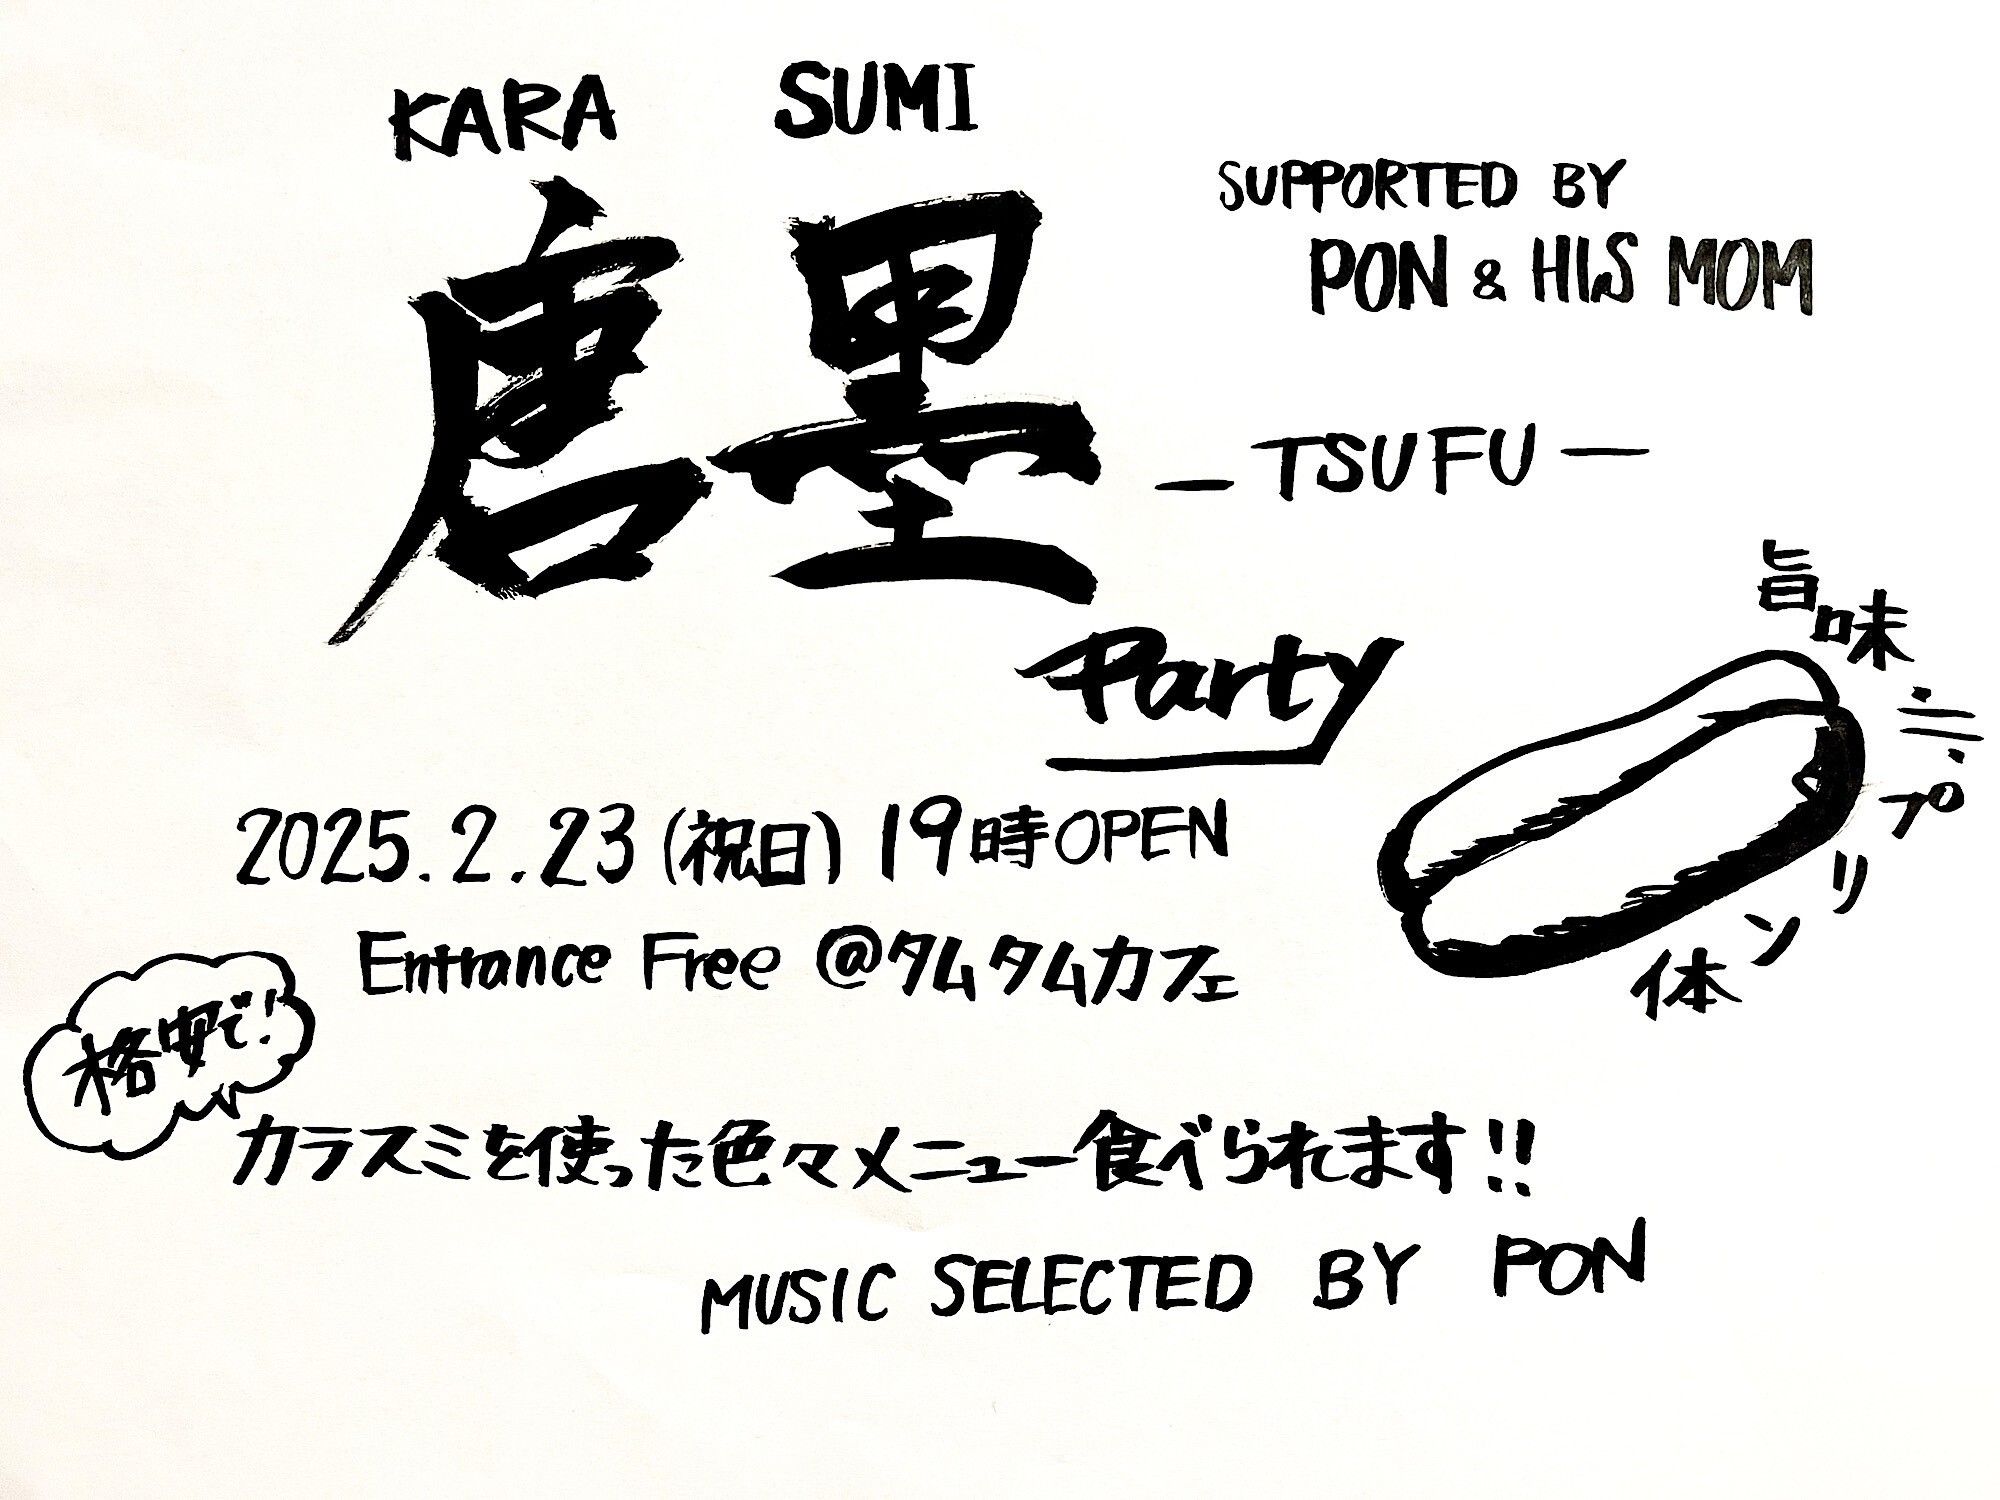 KARA SUMI
唐墨
SUPPORTED BY
PON & HIS MOM
― TSUFU ―
Party
旨味≒プリン体
2025.2.23(祝日) 19時OPEN
Entrance Free @タムタムカフェ
格安で!
カラスミを使った色々メニュー食べられます!!
MUSIC SELECTED BY PON